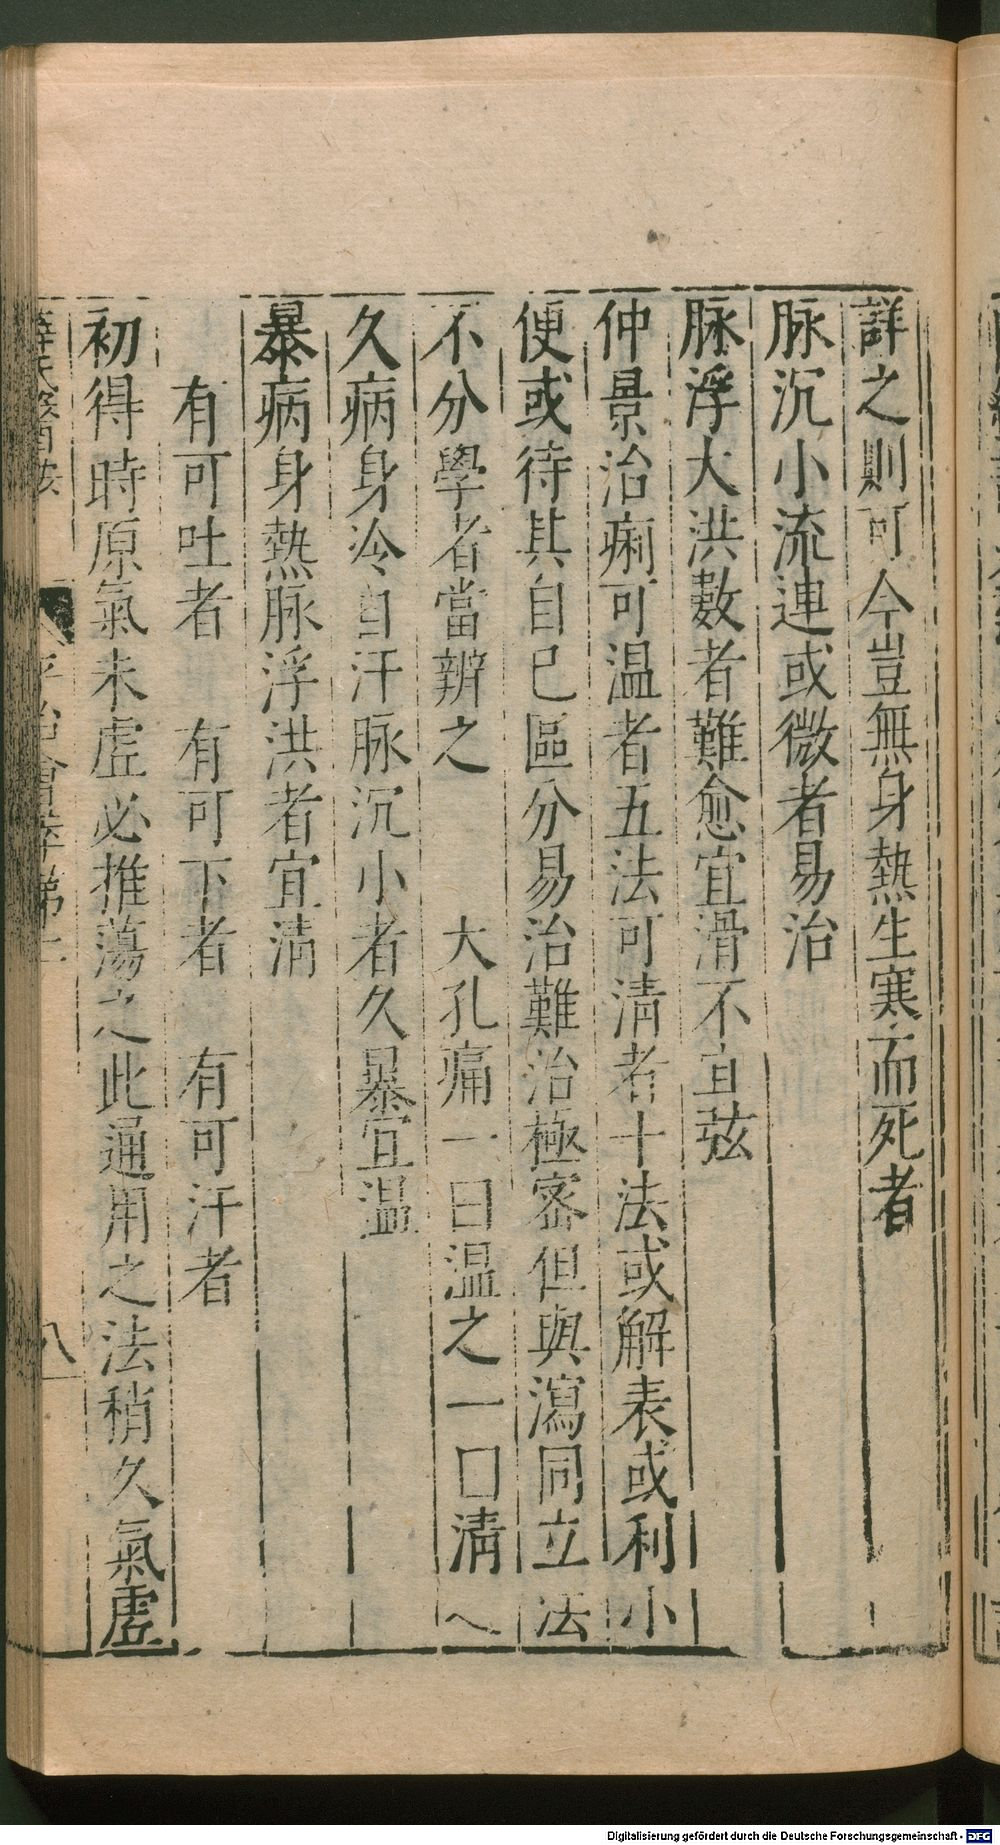 詳之則可今豈無身熱生寒而死者
脉沉小流連或微者易治
脉浮大洪數者難愈宜滑不宜弦
仲景治痢可温者五法可清者十法或解表或利小
便或待其自已區分易治難治極密但與瀉同立法
不分學者當辨之　　大孔痛一曰温之一曰清
久病身冷自汗脉沉小者久暴宜温
暴病身熱脉浮洪者宜清
有可吐者　有可下者　有可汗者
初得時原氣未虛必推蕩之此通用之法稍久氣虛
薛氏醫案　平治會萃
八
Digitalisierung gefördert durch die Deutsche Forschungsgemeinschaft - DFG